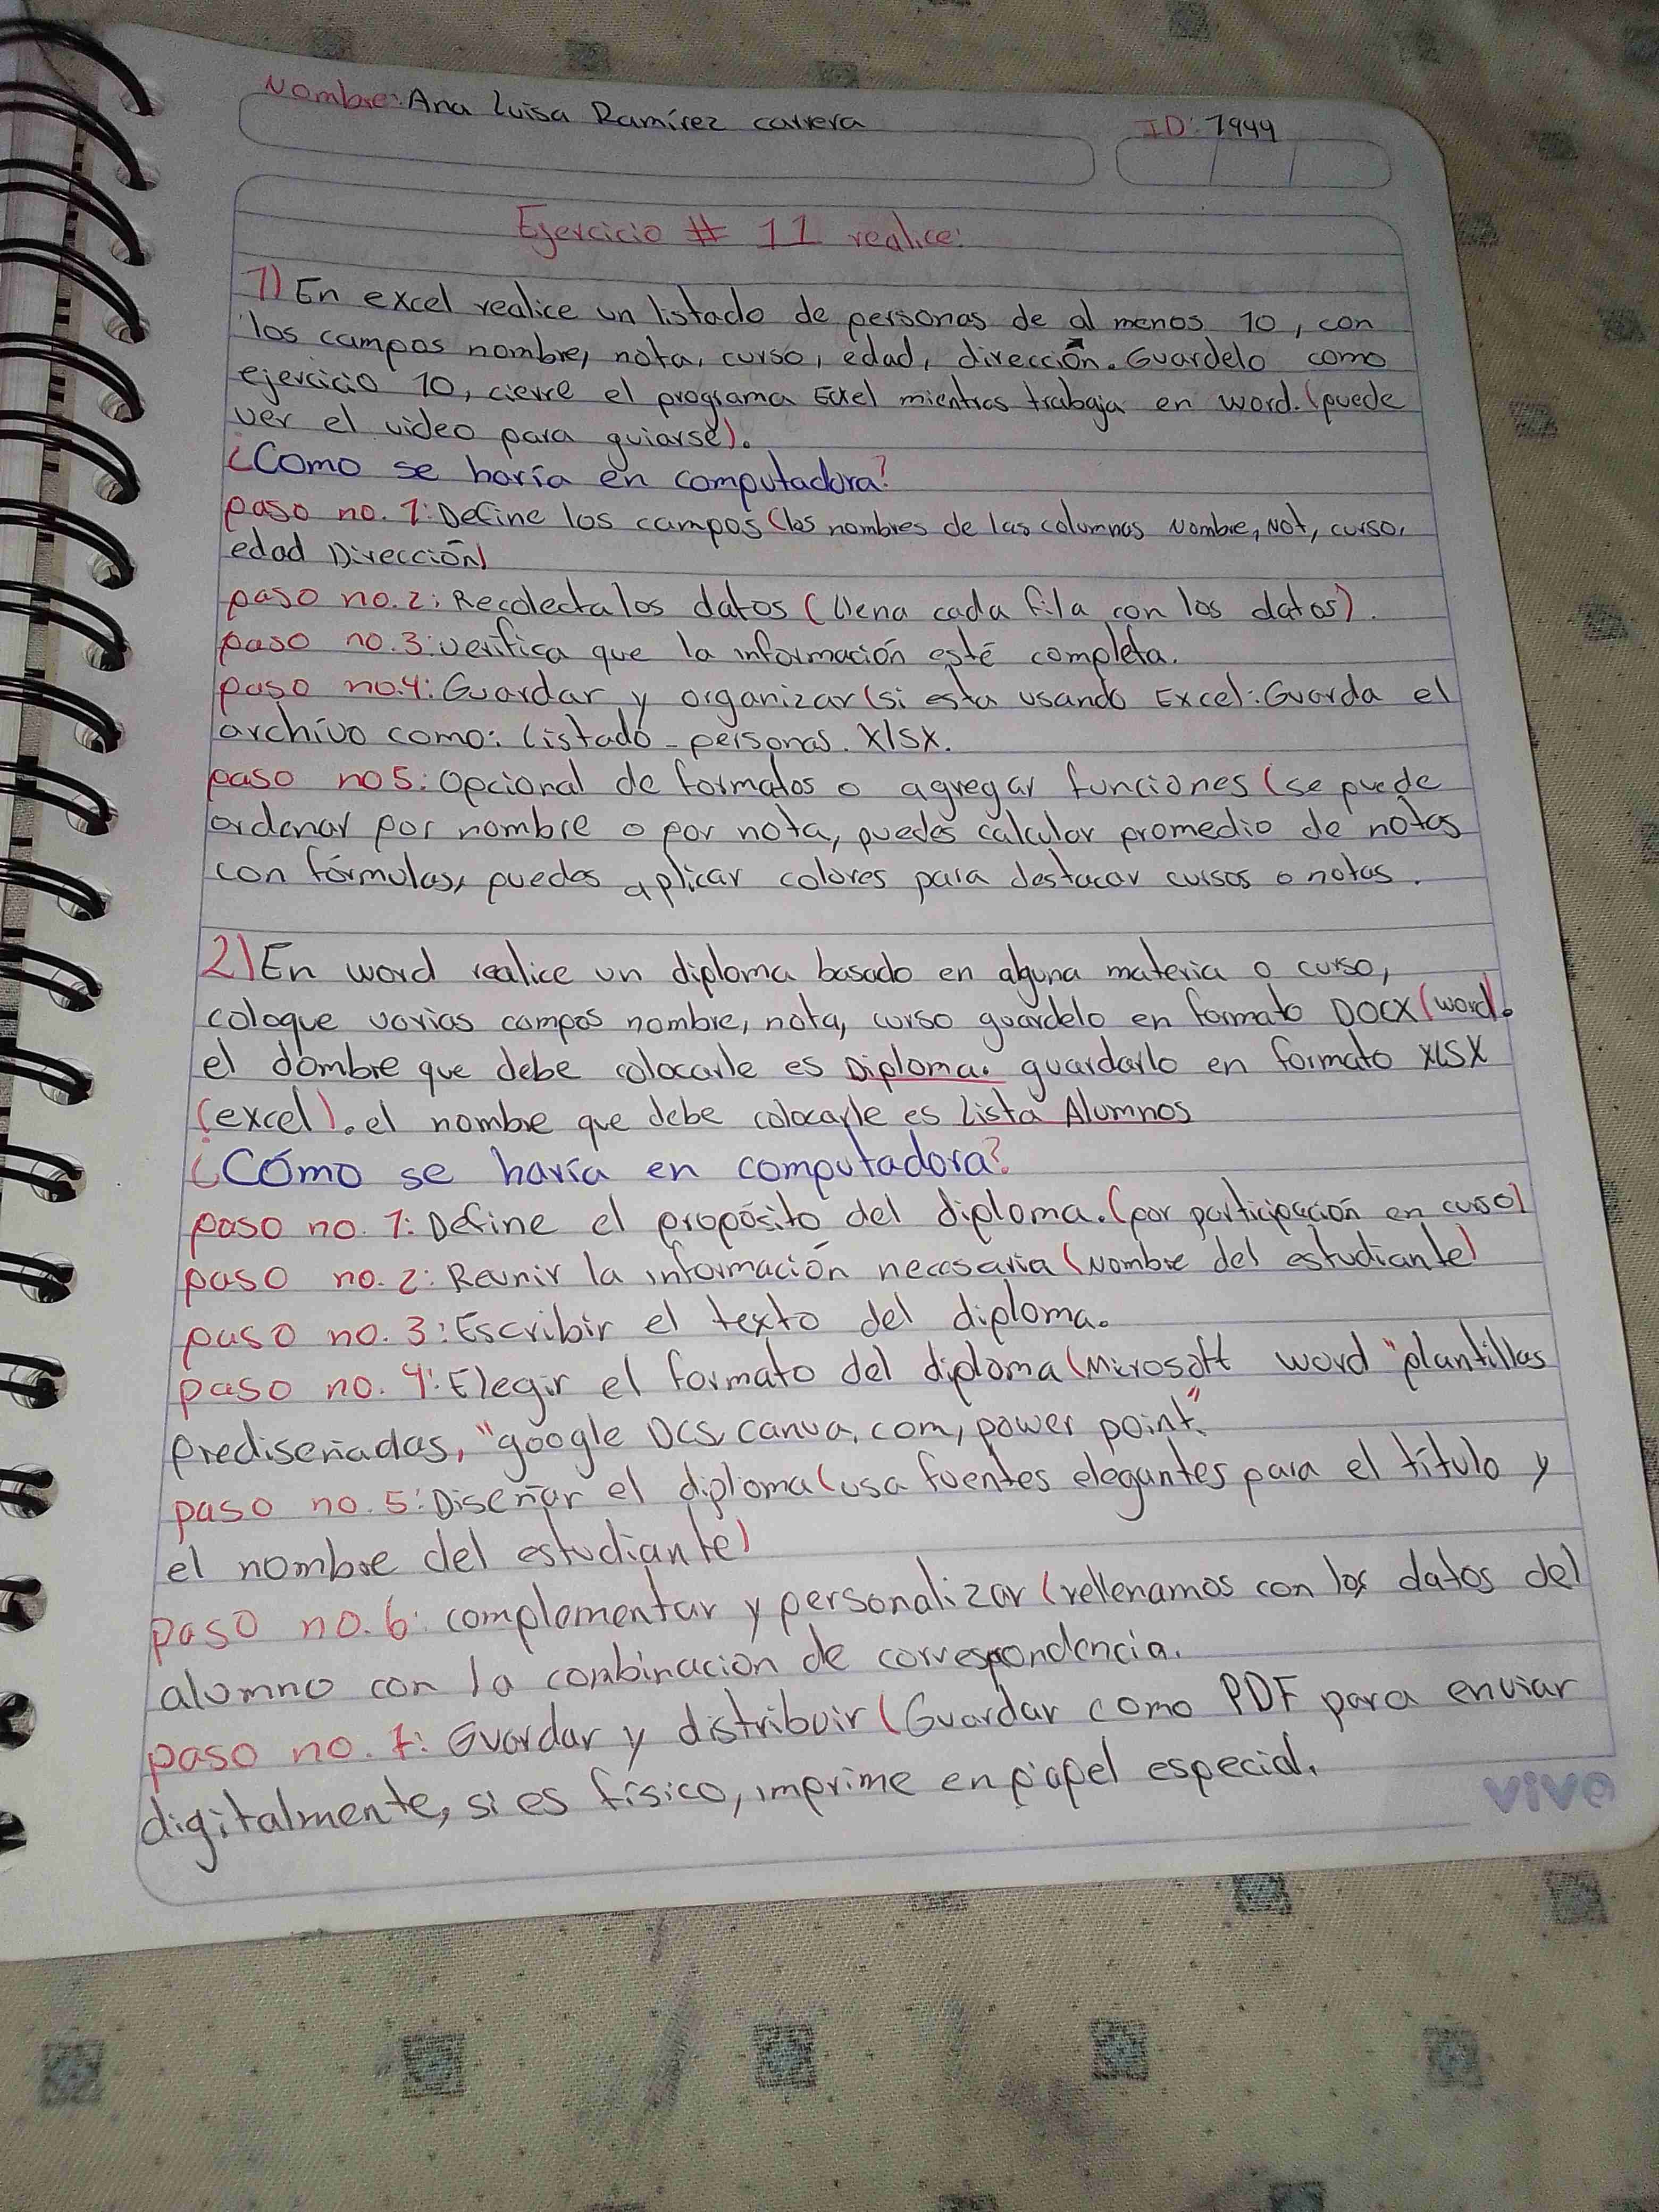 Nombre: Ana Luisa Ramírez carrera
ID: 7949
Ejercicio # 11 realice:
1) En excel realice un listado de personas de al menos 10, con
los campos nombre, nota, curso, edad, dirección. Guardelo como
ejercicio 10, cierre el programa Excel mientras trabaja en word. (puede
ver el video para guiarse).
¿Como se haría en computadora?
paso no. 1: Define los campos (los nombres de las columnas Nombre, Not, curso,
edad Dirección)
paso no. 2: Recolecta los datos (llena cada fila con los datos).
paso no. 3: verifica que la información esté completa.
paso no.4: Guardar y organizar (si esta usando Excel: Guarda el
archivo como: listado - personas. XlSX.
paso no 5: Opcional de formatos o agregar funciones (se puede
ordenar por nombre o por nota, puedes calcular promedio de notas
con fórmulas, puedes aplicar colores para destacar cursos o notas.
2) En word realice un diploma basado en alguna materia o curso,
coloque varios campos nombre, nota, curso guardelo en formato DOCX (word).
el dombre que debe colocarle es Diploma. guardarlo en formato XLSX
(excel). el nombre que debe colocarle es Lista Alumnos
¿Cómo se haría en computadora?
paso no. 1: Define el propósito del diploma. (por participación en curso)
paso no. 2: Reunir la información necesaria (Nombre del estudiante)
paso no. 3: Escribir el texto del diploma.
paso no. 4: Elegir el formato del diploma (Microsoft word "plantillas
prediseñadas, "google DCS, canva, com, power point".
paso no. 5: Diseñar el diploma (usa fuentes elegantes para el título y
el nombre del estudiante)
paso no. 6: complementar y personalizar (rellenamos con los datos del
alumno con la combinación de correspondencia.
paso no. 7: Guardar y distribuir (Guardar como PDF para enviar
digitalmente, si es físico, imprime en papel especial.
vivo